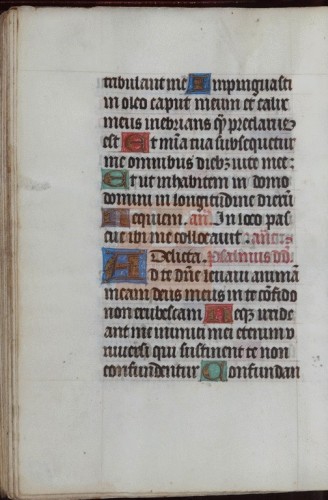 tribulant me Impinguasti
in oleo caput meum et calix
meus inebrians q̃ preclarus
est Et mĩa tua subsequetur
me omnibus diebꝫ vite mee:
Et ut inhabitem in domo
domini in longitudine dierũ
Requiem. añ. In loco pas
cue ibi me collocavit
A Delicta. Psalmus dd.
d te dñe levavi animam
meam deus meus in te cõfido
non erubescam Neqꝫ irride
ant me inimici mei etenim v
niversi qui sustinent te non
confundentur Confundan